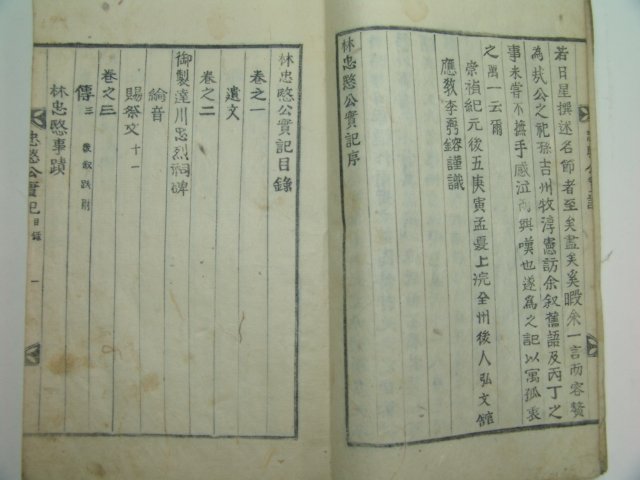 若日星撰述名師者至矣盡矣奚暇余一言而容贅
為找公之祀孫吉州牧淳憲訪余叙舊語及丙丁之
事未嘗不撫手感泣而興嘆也遂為之記以寓孤衷
之萬一云爾
崇禎紀元後五庚寅孟憂上浣全州後人弘文館
應敎李謹識
林忠愍公實記序
林忠愍公實記目錄
卷之一
遺文
卷之二
御製達川忠烈祠碑
綸音
賜祭文 十一
卷之三
傳 三 叙跋附
林忠愍事蹟
忠愍公實記 目錄 一